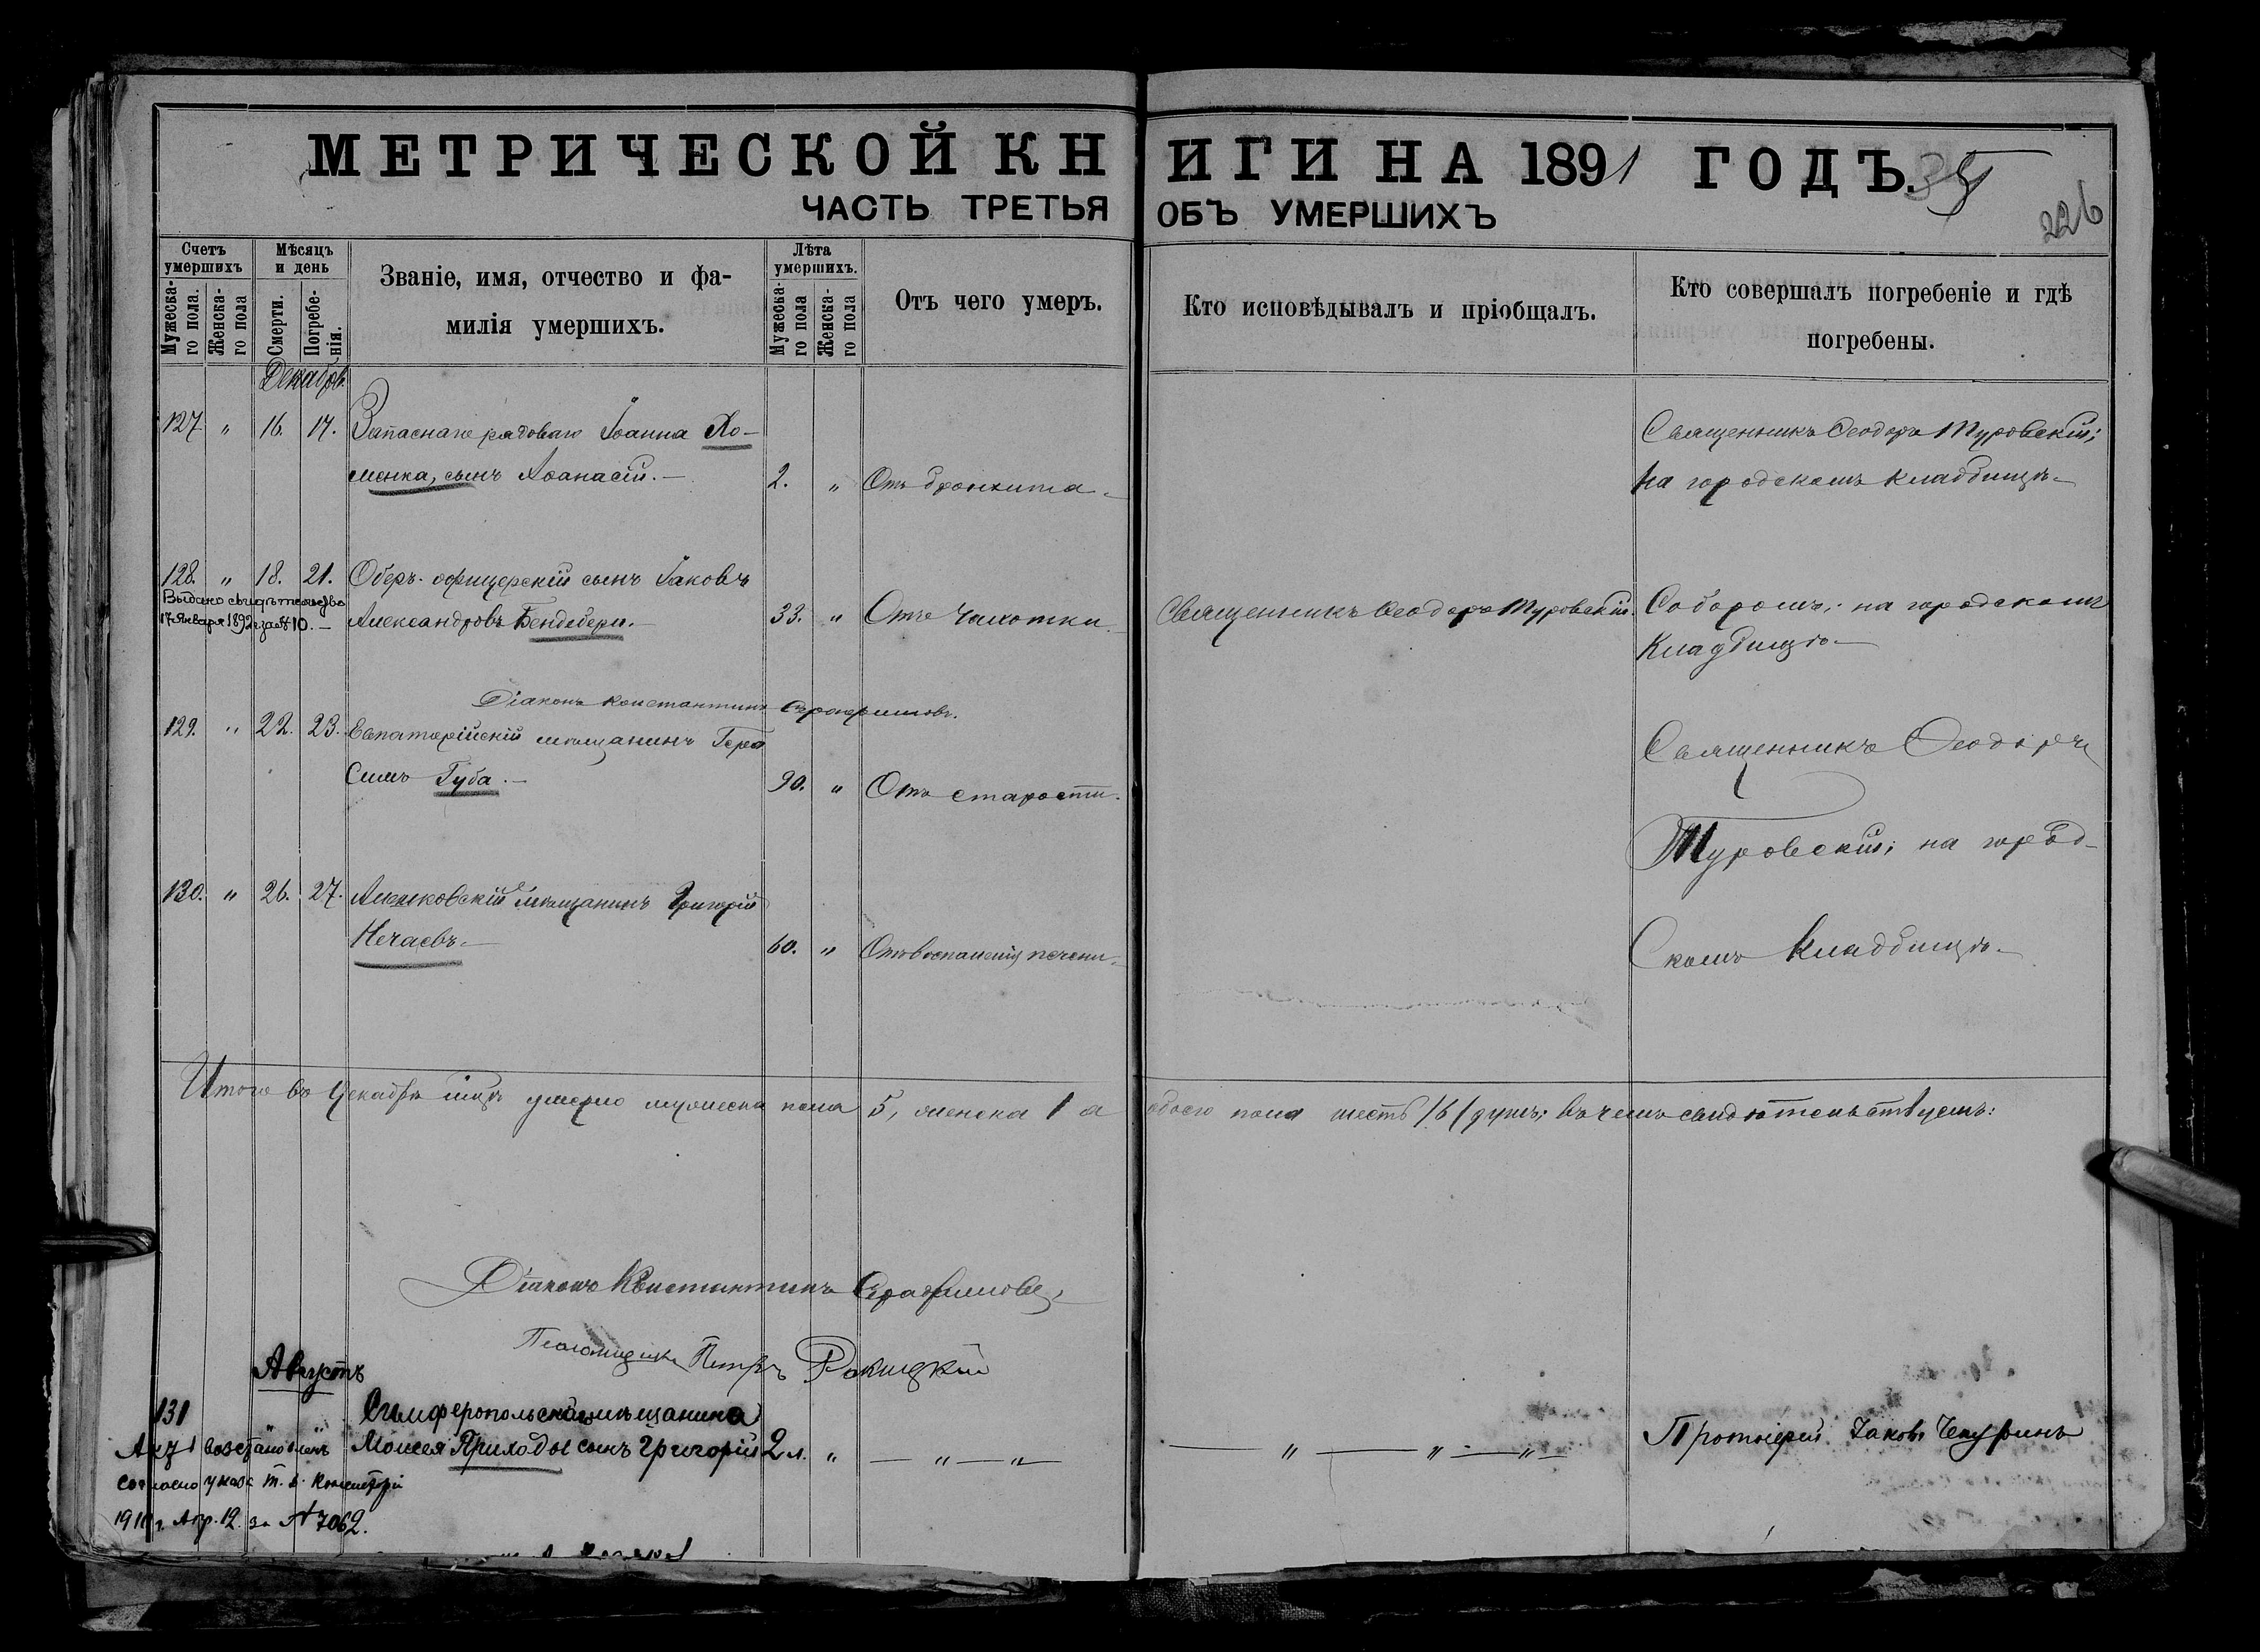 МЕТРИЧЕСКОЙ КНИГИ НА 1891 ГОДЪ.
ЧАСТЬ ТРЕТЬЯ ОБЪ УМЕРШИХЪ
226
Счетъ умершихъ
Мужеска-го пола.
Женска-го пола
Мѣсяцъ и день
Смерти.
Погребе-нія.
Званіе, имя, отчество и фа-
милія умершихъ.
Лѣта умершихъ.
Мужеска-го пола
Женска-го пола
Отъ чего умеръ.
Кто исповѣдывалъ и пріобщалъ.
Кто совершалъ погребеніе и гдѣ
погребены.
Декабрь
127 " 16. 17. Запаснаго рядового Іоанна Хо-
менка, сынъ Аѳанасій.— 2. " Отъ бронхита.
Священникъ Ѳеодоръ Туровскій;
на городскомъ кладбищѣ.—
128. " 18. 21. Оберъ-офицерскій сынъ Іаковъ
Александровъ Бендебери.— 33. " Отъ чахотки.
Выдано свидѣтельство
17 Января 1892 г. за № 10.—
Священникъ Ѳеодоръ Туровскій.
Соборомъ; на городскомъ
кладбищѣ.—
Діаконъ Константинъ Серафимовъ.
129. " 22. 23. Евпаторійскій мѣщанинъ Гера
симъ Губа.— 90. " Отъ старости.
Священникъ Ѳеодоръ
Туровскій; на город-
скомъ кладбищѣ.—
130. " 26. 27. Алешковскій мѣщанинъ Григорій
Нечаевъ.— 60. " Отъ воспаленія печени.
Итого въ Декабрѣ мцѣ умерло мужеска пола 5, женска 1 а обоего пола шесть /6/ душъ; въ чемъ свидѣтельствуемъ:
Діаконъ Константинъ Серафимовъ
Псаломщикъ Петръ Рокицкій
Августъ
131
Симферопольскаго мѣщанина
Моисея Приходы сынъ Григорій 2 л. " — " — " —
— " — " — " —
Протоіерей Іаковъ Чепуринъ
Актъ возстановленъ
согласно указа Т. Д. Консисторіи
Апр. 12. за № 7062.